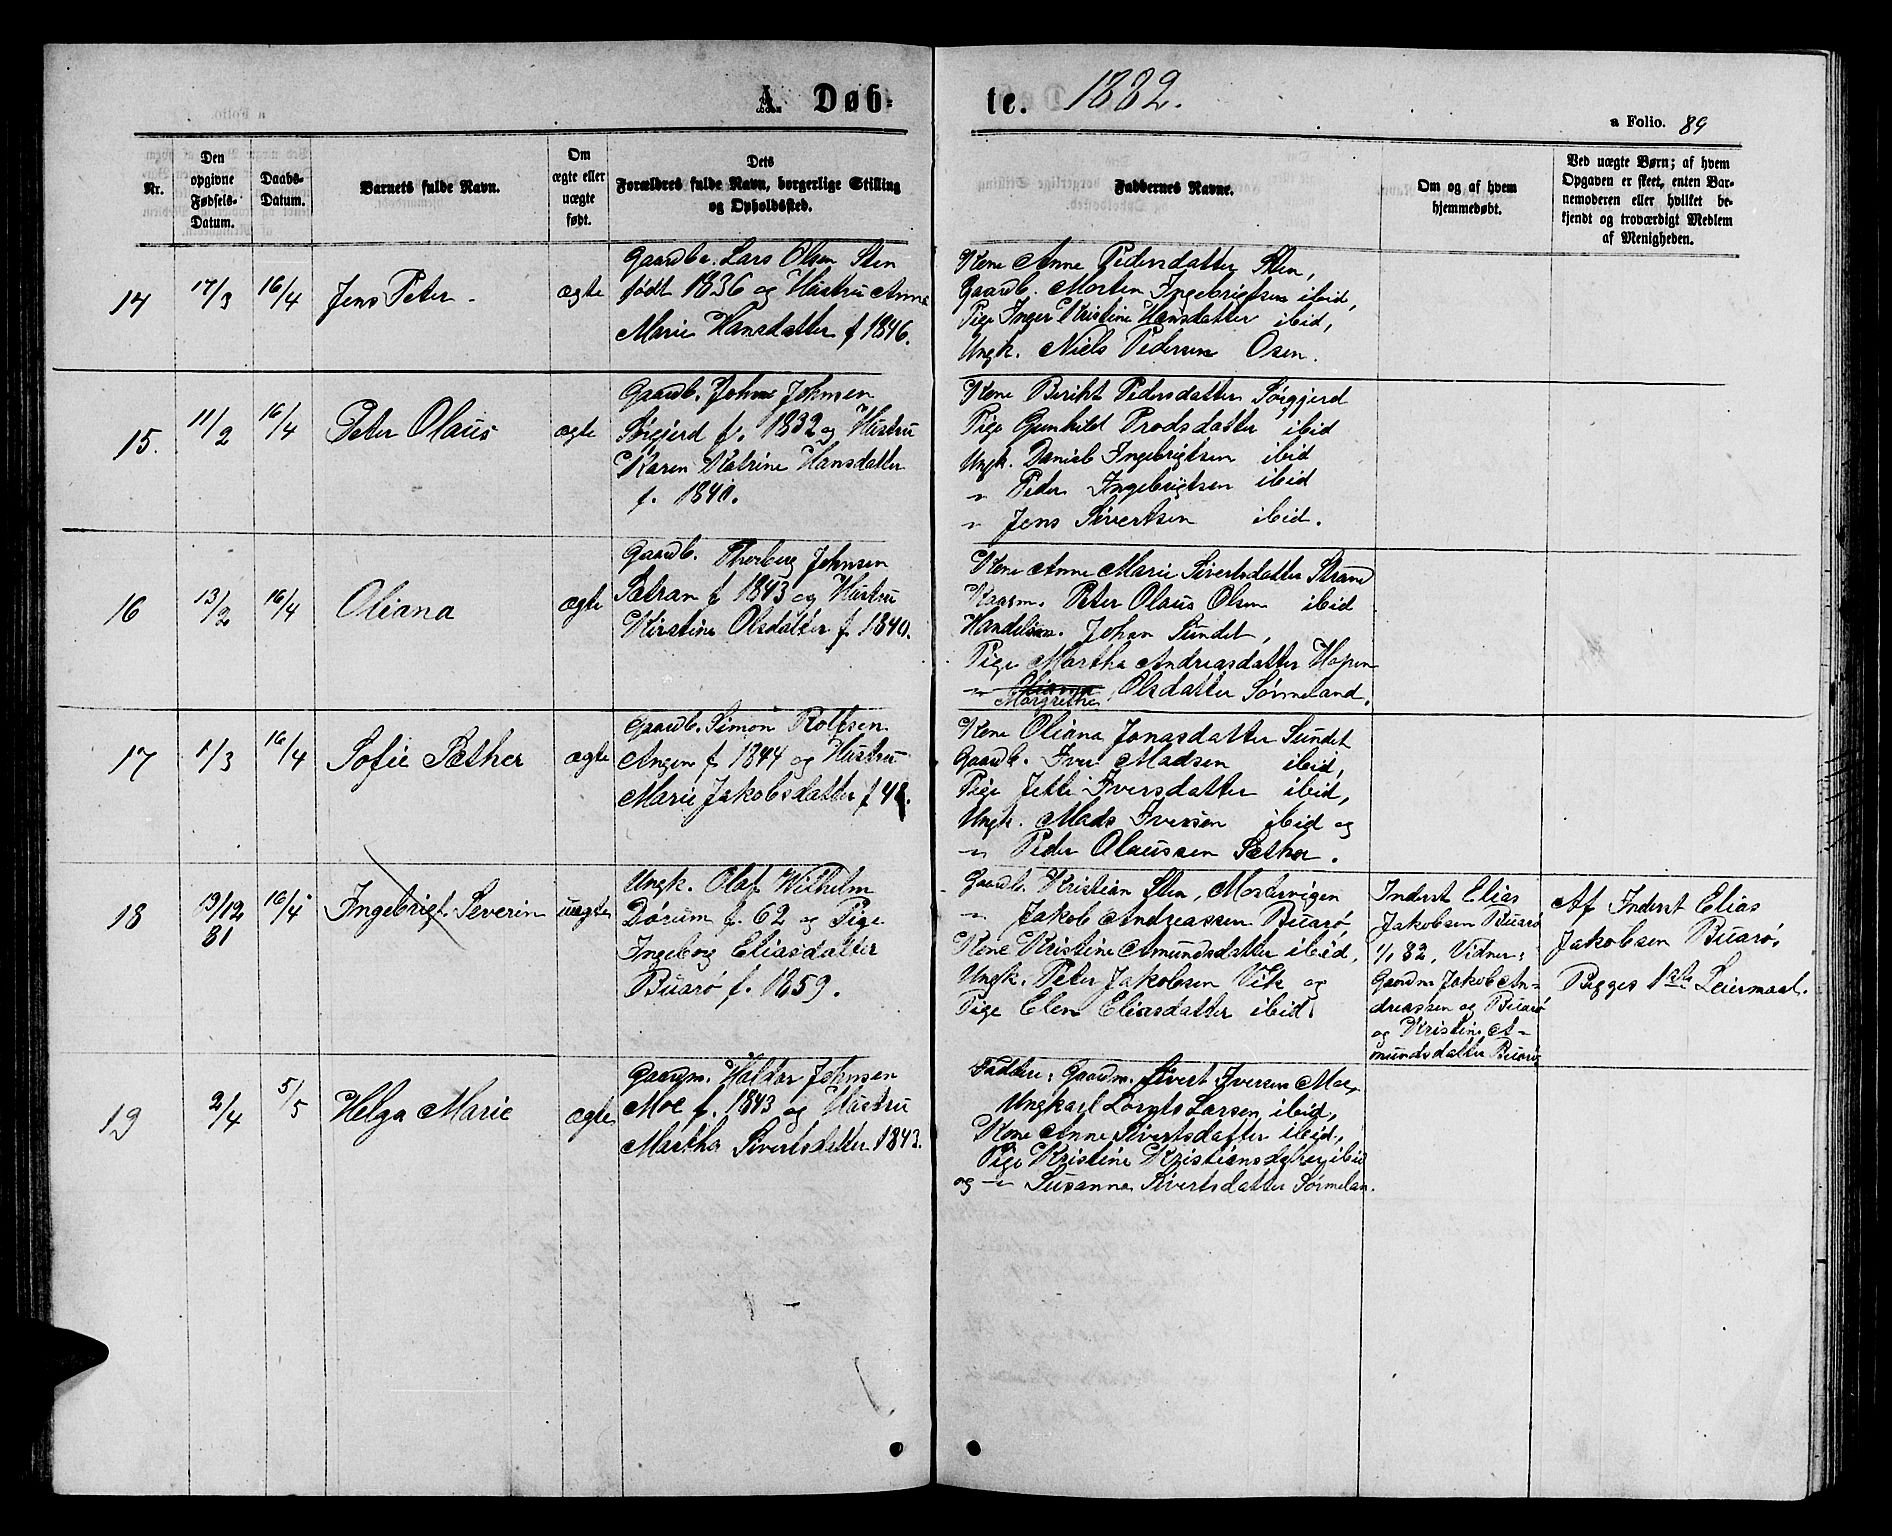 A. Døb-
te. 1882.
a Folio. 89
Nr.
Den
opgivne
Fødsels-
Datum.
Daabs-
Datum.
Barnets fulde Navn.
Om
ægte eller
uægte
født.
Dets
Forældres fulde Navn, borgerlige Stilling
og Opholdssted.
Faddernes Navne.
Om og af hvem
hjemmedøbt.
Ved uægte Børn; af hvem
Opgaven er skeet, enten Bar-
nemoderen eller hvilket be-
kjendt og troværdigt Medlem
af Menigheden.
14
17/3
16/4
Jens Peter
ægte
Gaardbr. Lars Olsen Sten
født 1836 og Hustru Anne
Marie Hansdatter f 1846.
Kone Anne Pedersdatter Sten,
Gaardb. Morten Ingebrigtsen ibid,
Pige Inger Kristine Hansdatter ibid,
Ungk. Niels Pedersen Osen.
15.
11/2
16/4
Peter Olaus
ægte
Gaardb. Johan Johnsen
Sørgjerd f. 1832 og Hustru
Karen Katrine Hansdatter
f. 1840.
Kone Beriht Pedersdatter Sørgjerd
Pige Gunhild Trodsdatter ibid
Ungk. Daniel Ingebrigtsen ibid
" Peder Ingebrigtsen ibid
" Jens Sivertsen ibid.
16
13/2
16/4
Oliana
ægte
Gaardb. Thorberg Johnsen
Sætran f 1843 og Hustru
Kirstine Olsdatter f. 1840.
Kone Anne Marie Sivertsdatter Strand
Kaarm. Peter Olaus Olsen ibid
Handelsm. Johan Sundet,
Pige Martha Andreasdatter Hopen
" Oliana Olsdatter Sørmeland.
Margrethe
17
1/3
16/4
Sofie Sæther
ægte
Gaardb. Simon Rolfsen
Angen f 1844 og Hustru
Marie Jakobsdatter f 48.
Kone Oliana Jonasdatter Sundet
Gaardb. Iver Madsen ibid,
Pige Jetti Iversdatter ibid,
Ungk. Mads Iversen ibid og
" Peder Olaussen Sæther.
18
13/12
81
16/4
Ingebrigt Severin
uægte
Ungk. Olaf Wilhelm
Dørum f. 62 og Pige
Ingeborg Eliasdatter
Buarø f. 1859.
Gaardb. Kristian Sten, Mostervigen
" Jakob Andreassen Buarø,
Kone Kristine Amundsdatter ibid,
Ungk. Peter Jakobsen Vik og
Pige Elen Eliasdatter ibid.
Inderst Elias
Jakobsen Buarø
1/1 82, Vidner:
Gaardm Jakob An-
dreassen og Buarø
og Kristine A-
mundsdatter Buarø
Af Inderst Elias
Jakobsen Buarø,
Begges 1ste Leiermaal.
19
2/4
5/5
Helga Marie
ægte
Gaardm. Haldor Johnsen
Moe f. 1843 og Hustru
Martha Sivertsdatter 1843.
Faddere: Gaardm. Sivert Iversen Moe,
Ungkarl Lornts Larsen, ibid,
Kone Anne Sivertsdatter ibid,
Pige Kristine Kristiansdatter ibid
og " Susanna Sivertsdatter Sørmelan.